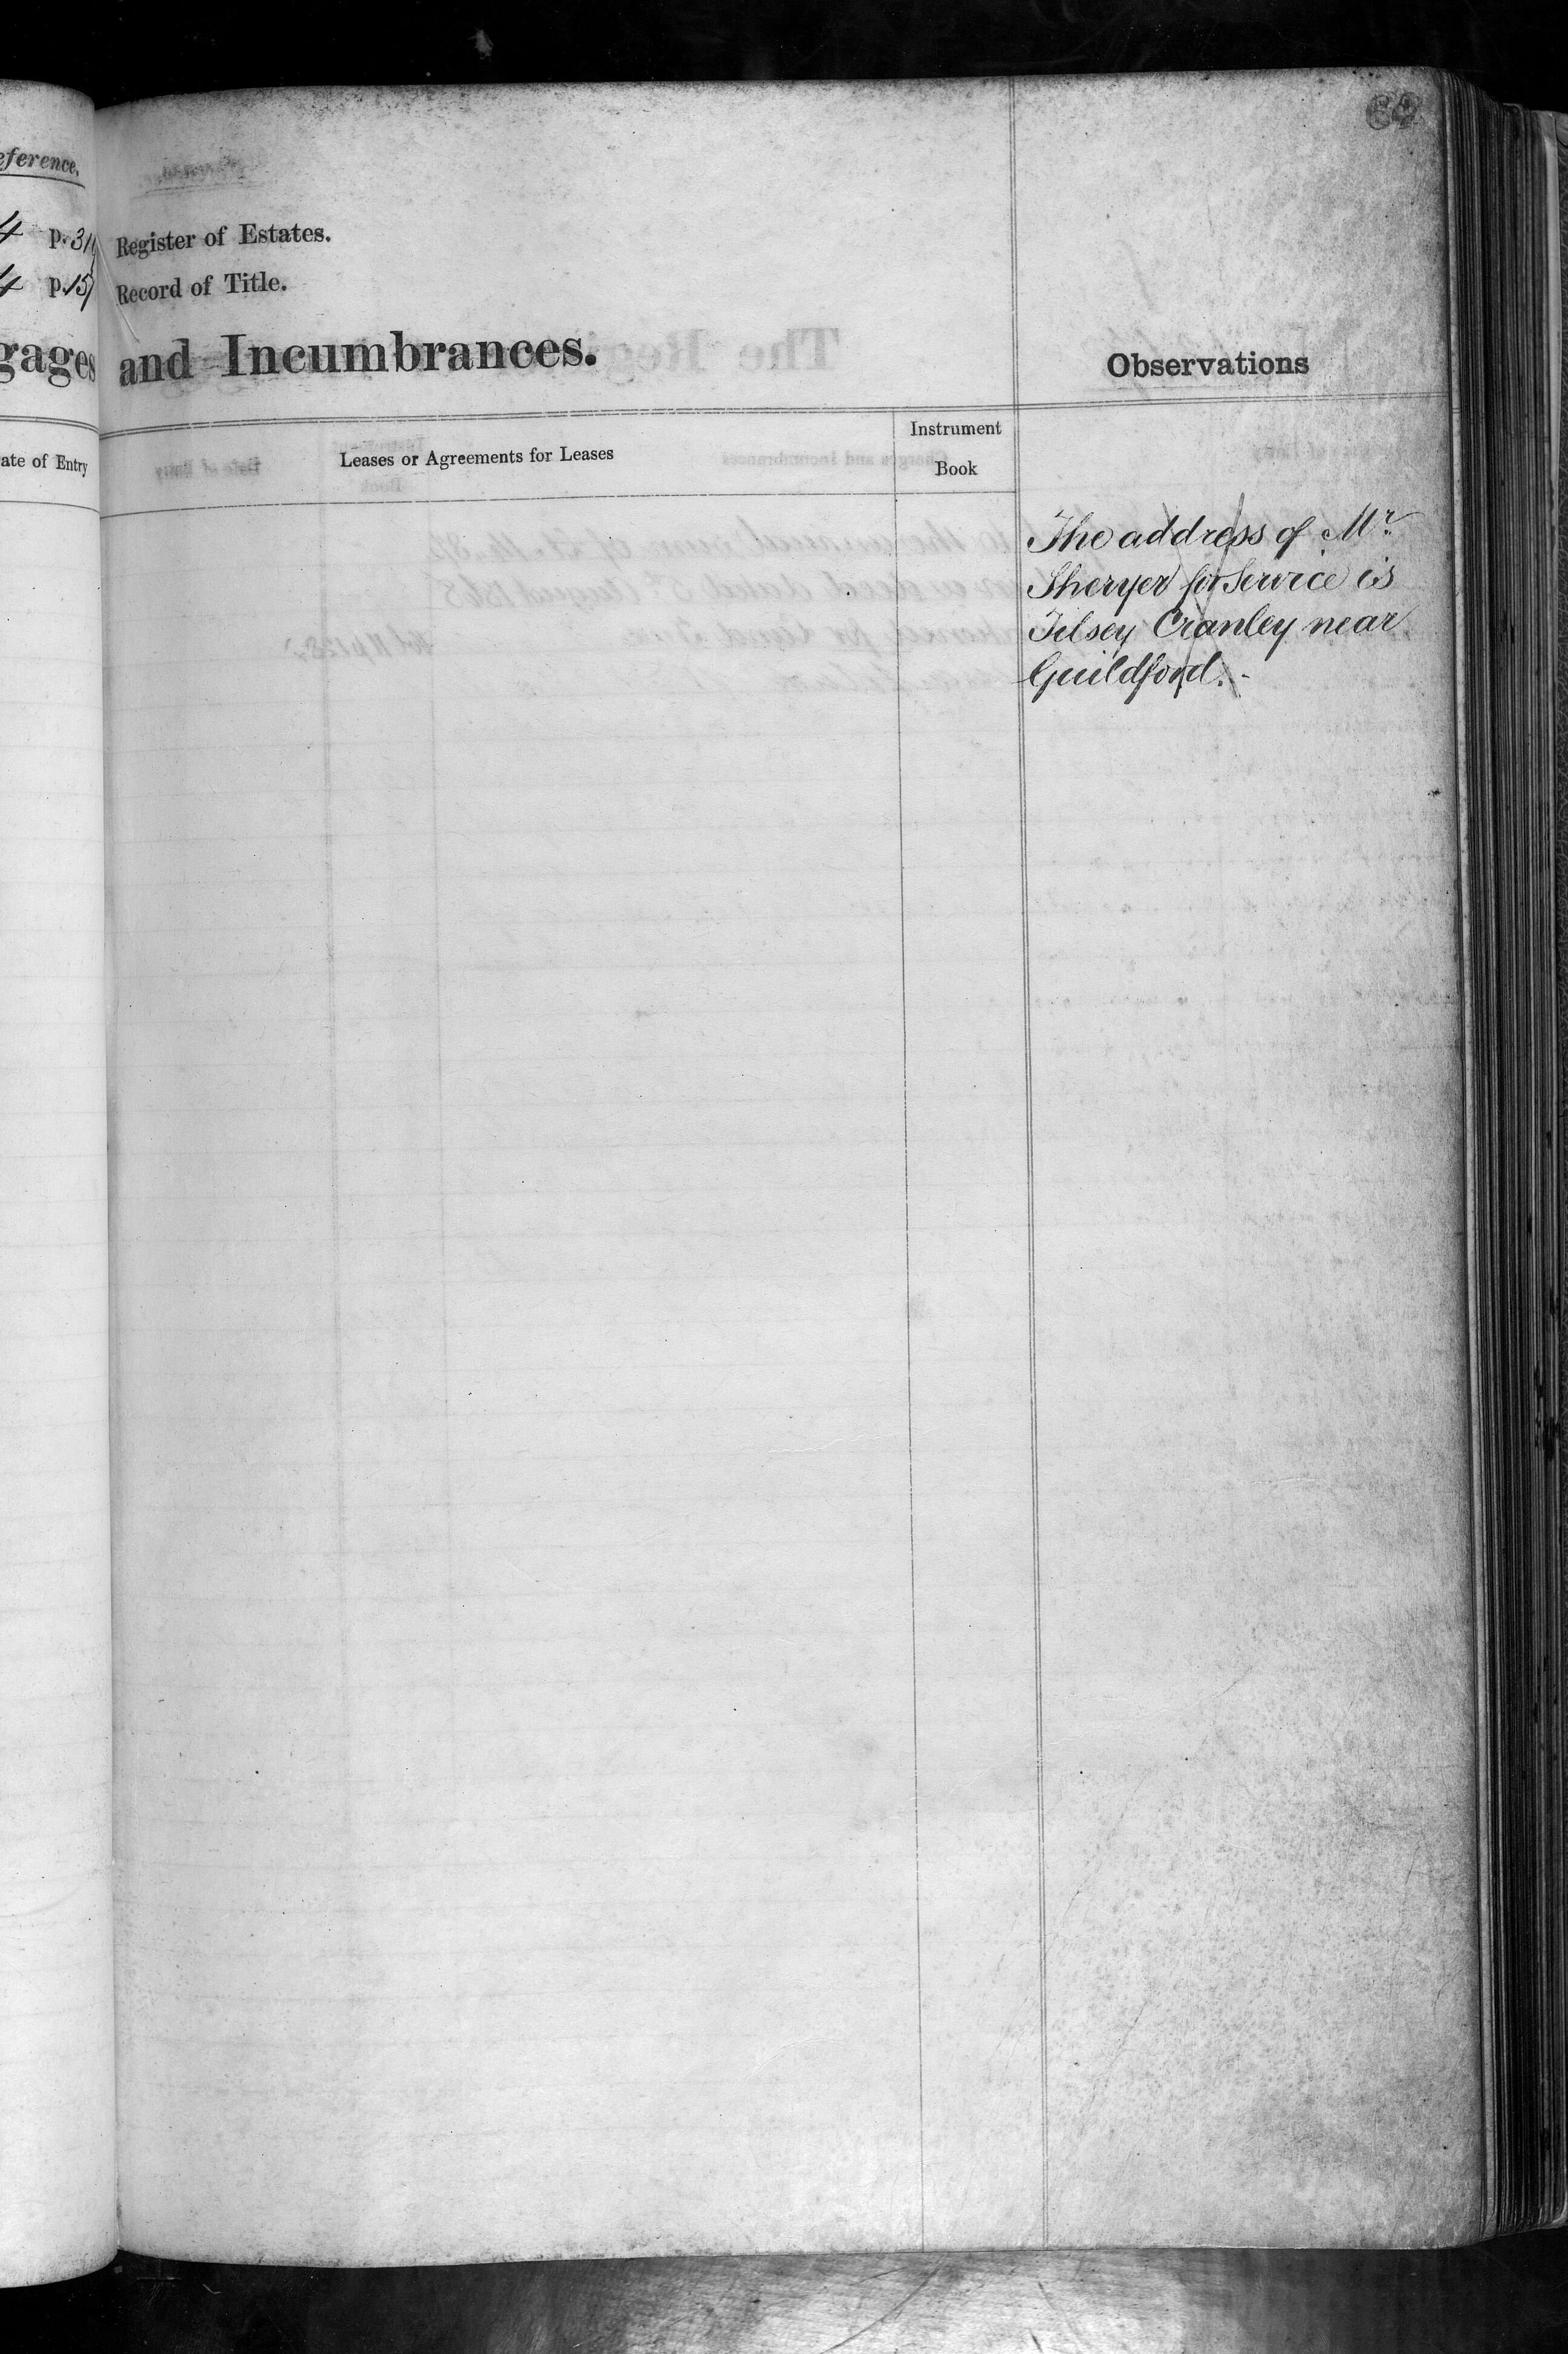 eference.
4 p. 31
4 p. 15
gages
ate of Entry
Register of Estates.
Record of Title.
and Incumbrances.
Observations
Leases or Agreements for Leases
Instrument
Book
The address of Mr.
for Service is
Cranley near
Guildford. -